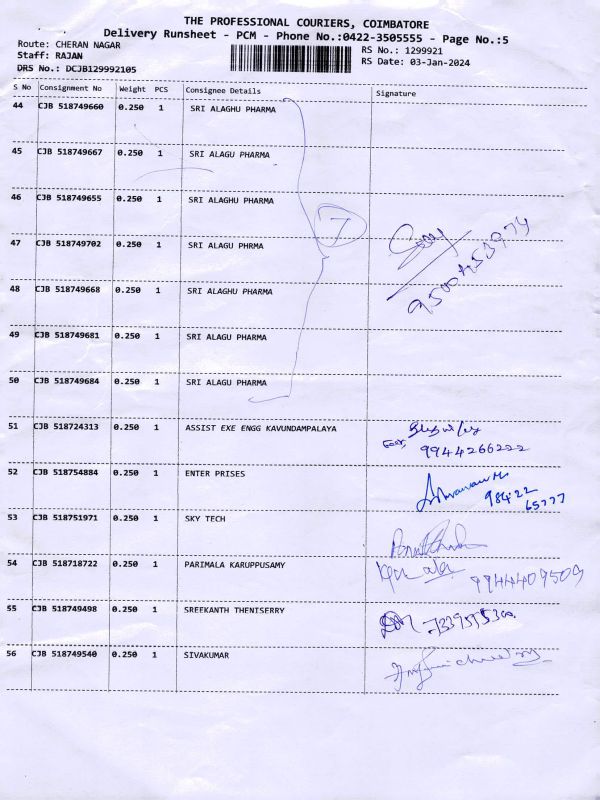 THE PROFESSIONAL COURIERS, COIMBATORE
Delivery Runsheet - PCM - Phone No.:0422-3505555 - Page No.:5
Route: CHERAN NAGAR RS No.: 1299921
Staff: RAJAN RS Date: 03-Jan-2024
DRS No.: DCJB129992105
S No Consignment No Weight PCS Consignee Details Signature
44 CJB 518749660 0.250 1 SRI ALAGHU PHARMA
45 CJB 518749667 0.250 1 SRI ALAGU PHARMA
46 CJB 518749655 0.250 1 SRI ALAGHU PHARMA
7
47 CJB 518749702 0.250 1 SRI ALAGU PHRMA
48 CJB 518749668 0.250 1 SRI ALAGHU PHARMA
49 CJB 518749681 0.250 1 SRI ALAGU PHARMA
50 CJB 518749684 0.250 1 SRI ALAGU PHARMA
51 CJB 518724313 0.250 1 ASSIST EXE ENGG KAVUNDAMPALAYA
9944266222
52 CJB 518754884 0.250 1 ENTER PRISES
98422
65777
53 CJB 518751971 0.250 1 SKY TECH
54 CJB 518718722 0.250 1 PARIMALA KARUPPUSAMY 9944409509
55 CJB 518749498 0.250 1 SREEKANTH THENISERRY
56 CJB 518749540 0.250 1 SIVAKUMAR